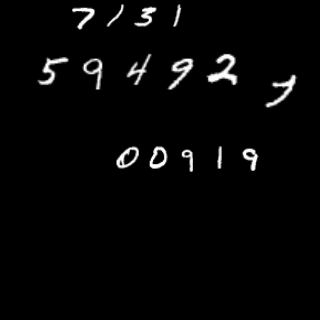 7131
59492
00919